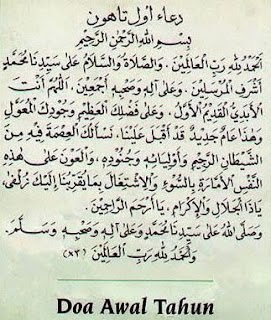 دعاء اول تاهون
بِسْمِ اللهِ الرَّحْمٰنِ الرَّحِيْمِ
اَلْحَمْدُ لِلهِ رَبِّ الْعَالَمِيْنَ. وَالصَّلَاةُ وَالسَّلَامُ عَلٰى سَيِّدِنَا مُحَمَّدٍ
اَشْرَفِ الْمُرْسَلِيْنَ. وَعَلٰى اٰلِهِ وَصَحْبِهِ اَجْمَعِيْنَ. اَللّٰهُمَّ اَنْتَ
الْاَبَدِيُّ الْقَدِيْمُ الْاَوَّلُ. وَعَلٰى فَضْلِكَ الْعَظِيْمِ وَجُوْدِكَ الْمُعَوَّلُ
وَهٰذَا عَامٌ جَدِيْدٌ قَدْ اَقْبَلَ عَلَيْنَا. نَسْأَلُكَ الْعِصْمَةَ فِيْهِ مِنَ
الشَّيْطَانِ الرَّجِيْمِ وَاَوْلِيَائِهِ وَجُنُوْدِهِ. وَالْعَوْنَ عَلٰى هٰذِهِ
النَّفْسِ الْاَمَّارَةِ بِالسُّوْءِ وَالْاِشْتِغَالَ بِمَا يُقَرِّبُنَا اِلَيْكَ زُلْفٰى
يَاذَا الْجَلَالِ وَالْاِكْرَامِ. يَا اَرْحَمَ الرَّاحِمِيْنَ.
وَصَلَّى اللهُ عَلٰى سَيِّدِنَا مُحَمَّدٍ وَعَلٰى اٰلِهِ وَصَحْبِهِ وَسَلَّمَ.
وَالْحَمْدُ لِلهِ رَبِّ الْعَالَمِيْنَ (٣×)
Doa Awal Tahun